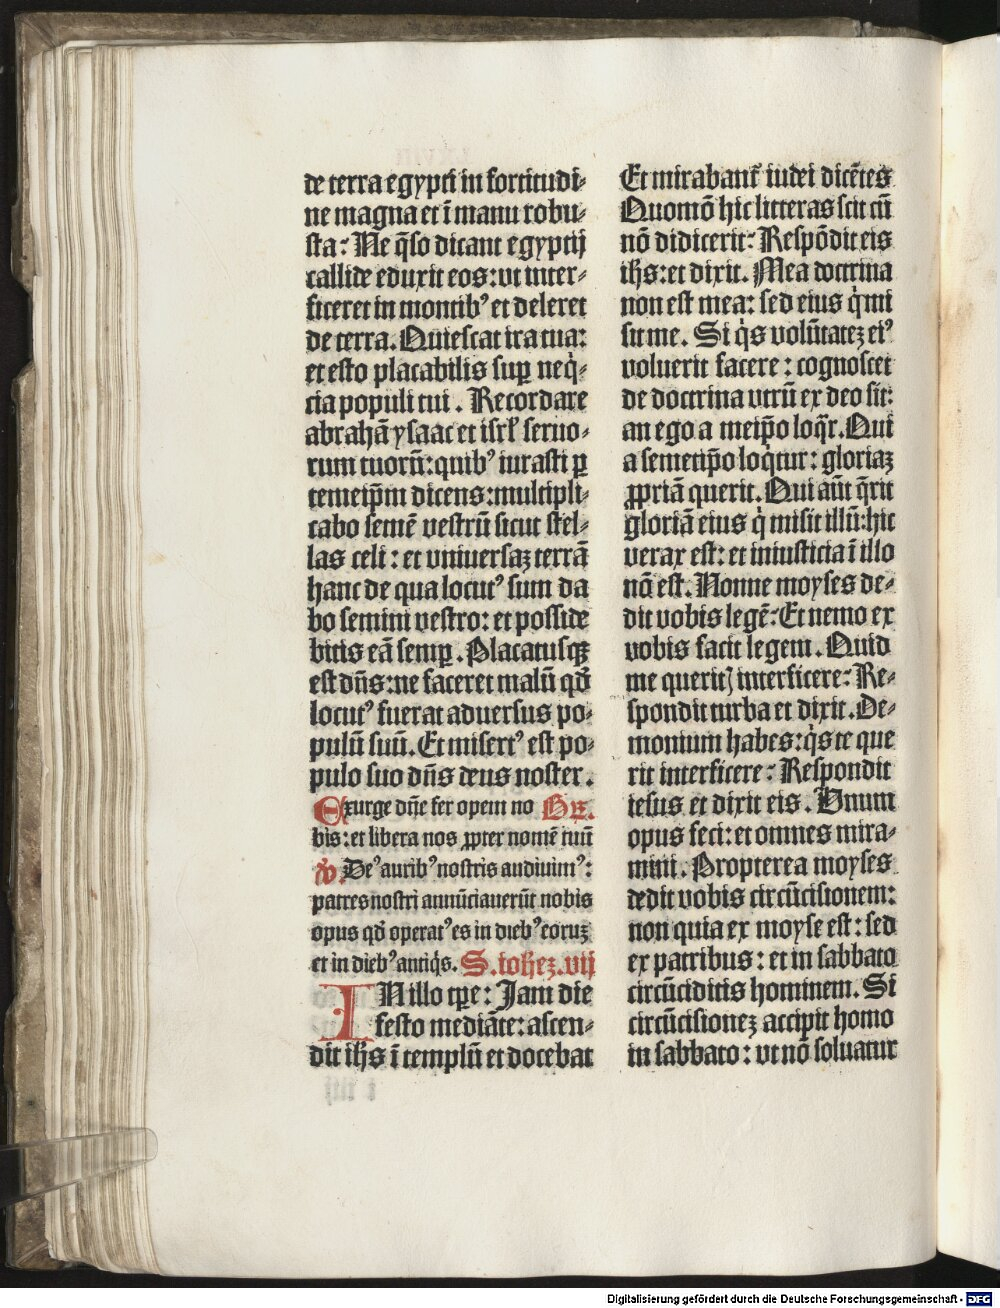 de terra egypti in fortitudi⸗
ne magna et ī manu robu⸗
sta? Ne q̄so dicant egyptij
callide eduxit eos: vt inter⸗
ficeret in montibꝰ et deleret
de terra. Quiescat ira tua:
et esto placabilis suꝑ neq̇⸗
cia populi tui. Recordare
abrahā ysaac et isrl̓ seruo⸗
rum tuorū: quibꝰ iurasti ꝑ
temeip̄m dicens: multipli⸗
cabo semē vestrū sicut stel⸗
las celi: et vniuersaꝫ terrā
hanc de qua locutꝰ sum da
bo semini vestro: et posside
bitis eā semꝑ. Placatusqꝫ
est dn̄s: ne faceret malū qd̓
locutꝰ fuerat aduersus po⸗
pulū suū. Et misertꝰ est po⸗
pulo suo dn̄s deus noster.
Exurge dn̄e fer opem no Gr̄.
bis: et libera nos ꝓpter nomē tuū
℣. Deꝰ auribꝰ nostris audiuimꝰ:
patres nostri annūciauerūt nobis
opus qd̓ operatꝰ es in diebꝰ eoruꝫ
et in diebꝰ antiq̇s. S. ioheꝫ. vij
IN illo tp̄e: Jam die
festo mediāte: ascen⸗
dit ih̄s ī templū et docebat
Et mirabant᷑ iudei dicētes
Quomō hic litteras scit cū
nō didicerit? Respōdit eis
ih̄s: et dixit. Mea doctrina
non est mea: sed eius q̇ mi
sit me. Si q̇s volūtateꝫ eiꝰ
voluerit facere: cognoscet
de doctrina vtrū ex deo sit:
an ego a meip̄o loq̄r. Qui
a semetip̄o loq̇tur: gloriaꝫ
ꝓpriā querit. Qui aūt q̄rit
gloriā eius q̇ misit illū: hic
verax est: et iniusticia ī illo
nō est. Nonne moyses de⸗
dit vobis legē? Et nemo ex
vobis facit legem. Quid
me querit] interficere? Re⸗
spondit turba et dixit. De⸗
monium habes: q̇s te que
rit interficere? Respondit
iesus et dixit eis. Vnum
opus feci: et omnes mira⸗
mini. Propterea moyses
dedit vobis circūcisionem:
non quia ex moyse est: sed
ex patribus: et in sabbato
circūciditis hominem. Si
circūcisioneꝫ accipit homo
in sabbato: vt nō soluatur
Digitalisierung gefördert durch die Deutsche Forschungsgemeinschaft - DFG